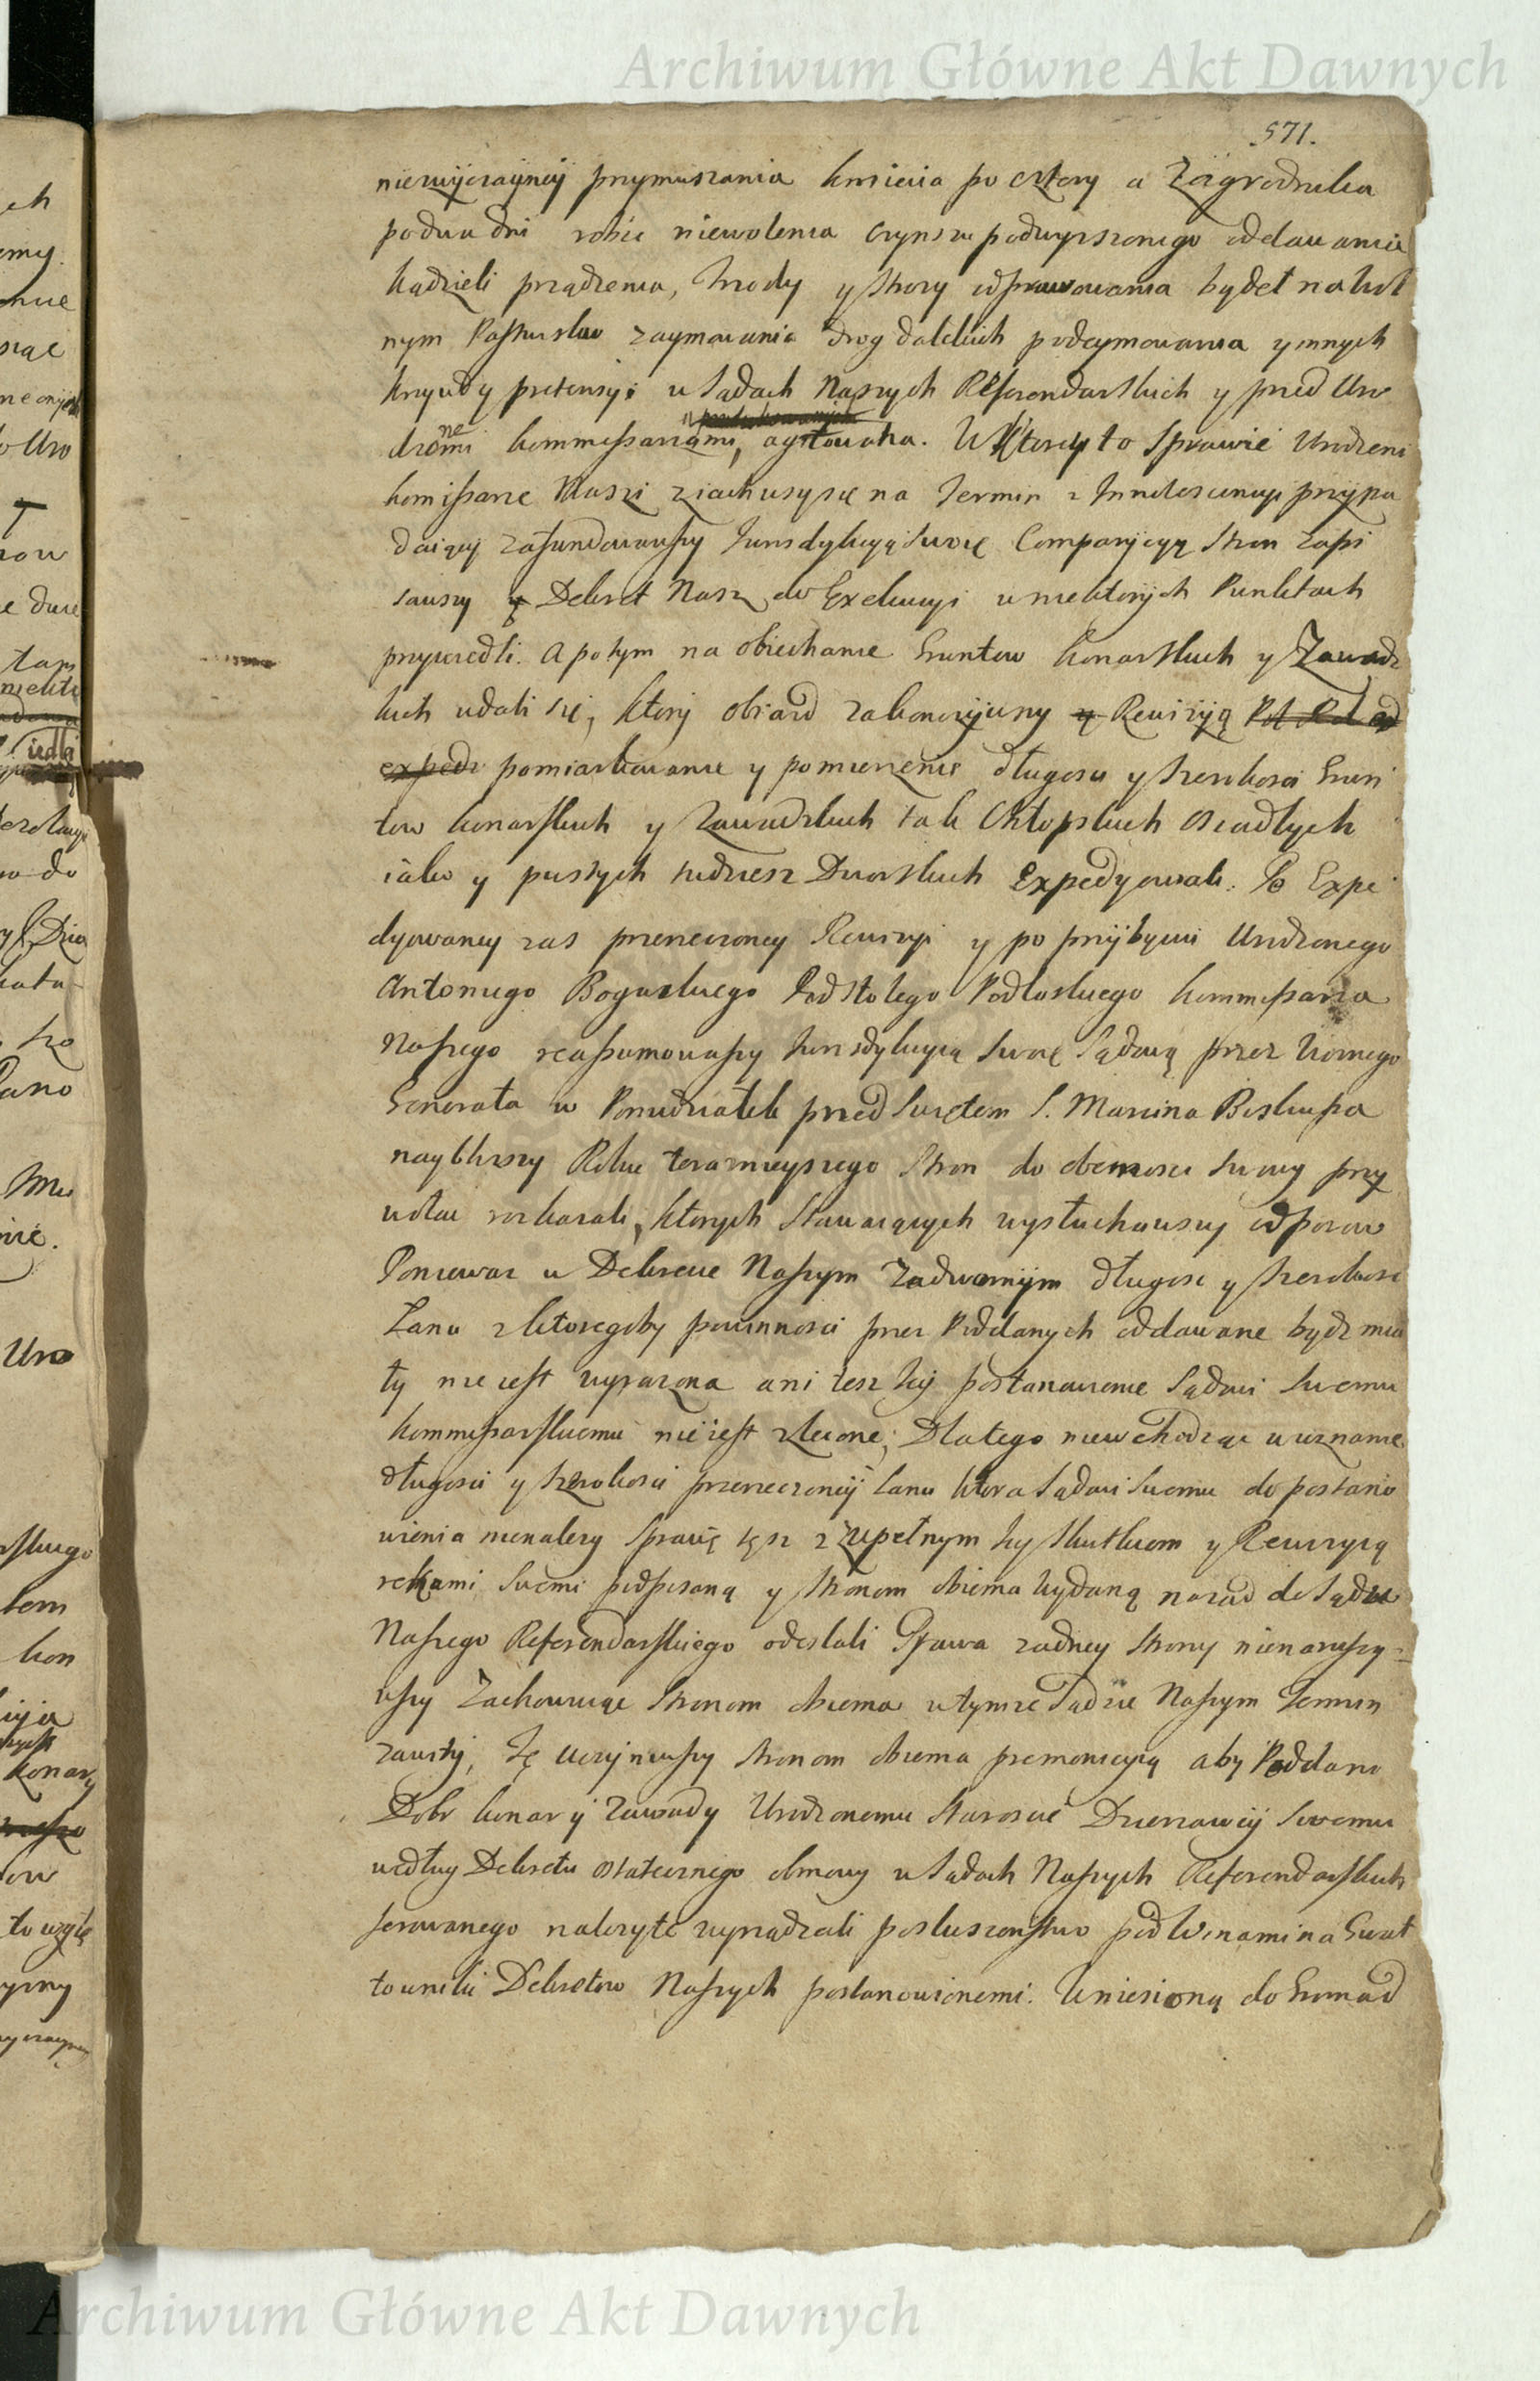 Archiwum Główne Akt Dawnych
571.
niezwyczayney przymuszania kmiecia po cztery a Zagrodnika
po dwa dni robić niewolenia czynszu podwyzszonego oddawanie
kądzieli prządzenia, Strozy odprawowania bydeł na wol
nym Pastwisku zaymowania drog dalekich podeymowania y innych
krzywd y pretensyi w Sądach Naszych Referendarskich y przed Uro
dzonemi kommissarzami, agitowana. W ktorey to Sprawie Urodzeni
komissarze Naszi ziachawszy się na Termin z Innotescencyi przypa
daiący zafundowawszy Jurisdykcyą swoię Comparycyą Stron zapi
sawszy Dekret Nasz do Exekucyi w niektorych Punktach
przywiedli. A potym na obiechanie Gruntow konarskich y Zawadz
kich udali się, ktory obiazd zakonczywszy Rewizyą
expedi pomiarkowanie y pomierzenie długosci y szerokosci Grun
tow konarskich y Zawadzkich tak Chłopskich osiadłych
iako y pustych tudziesz Dworskich Expedyowali. Po Expe
dyowaney zas przerzeczoney Rewizyi y po przybyciu Urodzonego
Antoniego Boguckiego Podstolego Podlaskiego kommissarza
Naszego reassumowawszy Jurisdykcyą swoię Sądową przez Woznego
Generała w Poniedziałek przed Swiętem S. Marcina Biskupa
nayblizszy Roku teraznieyszego Stron do obecnosci swoiey przy
wołac rozkazali, ktorych stawaiących wysłuchawszy odporow
Poniewaz w Dekrecie Naszym Zadwornym długosc y szerokosc
Łanu z ktoregoby powinnosci przez Poddanych oddawane bydz mia
ły nie iest wyrazona ani tesz iey postanowienie Sądowi swemu
kommissarskiemu nie iest zlecone; Dlatego niewchodząc w uznanie
długosci y szerokosci przerzeczonej Łanu ktora Sądowi swemu do postano
wienia nienalezy Sprawę tęsz z zupełnym iey skutkiem y Rewizyią
rękami swemi podpisaną y Stronom obiema wydaną nazad do Sądu
Naszego Referendarskiego odesłali Prawa zadney Strony nienaruszy-
wszy Zachowuiąc Stronom obiema w tymze Sądzie Naszym Termin
zawity, Tę uczyniwszy Stronom obiema premonicyią aby Poddani
Dobr konar y Zawady Urodzonemu Staroscie Dzierzawcy swemu
według Dekretu ostatecznego obmowy w Sądach Naszych Referendarskich
ferowanego nalezyte wyrządzali posłuszenstwo pod Winami na Gwał
townikow Dekretow Naszych postanowionemi. Uniesioną do Gromad
Archiwum Główne Akt Dawnych